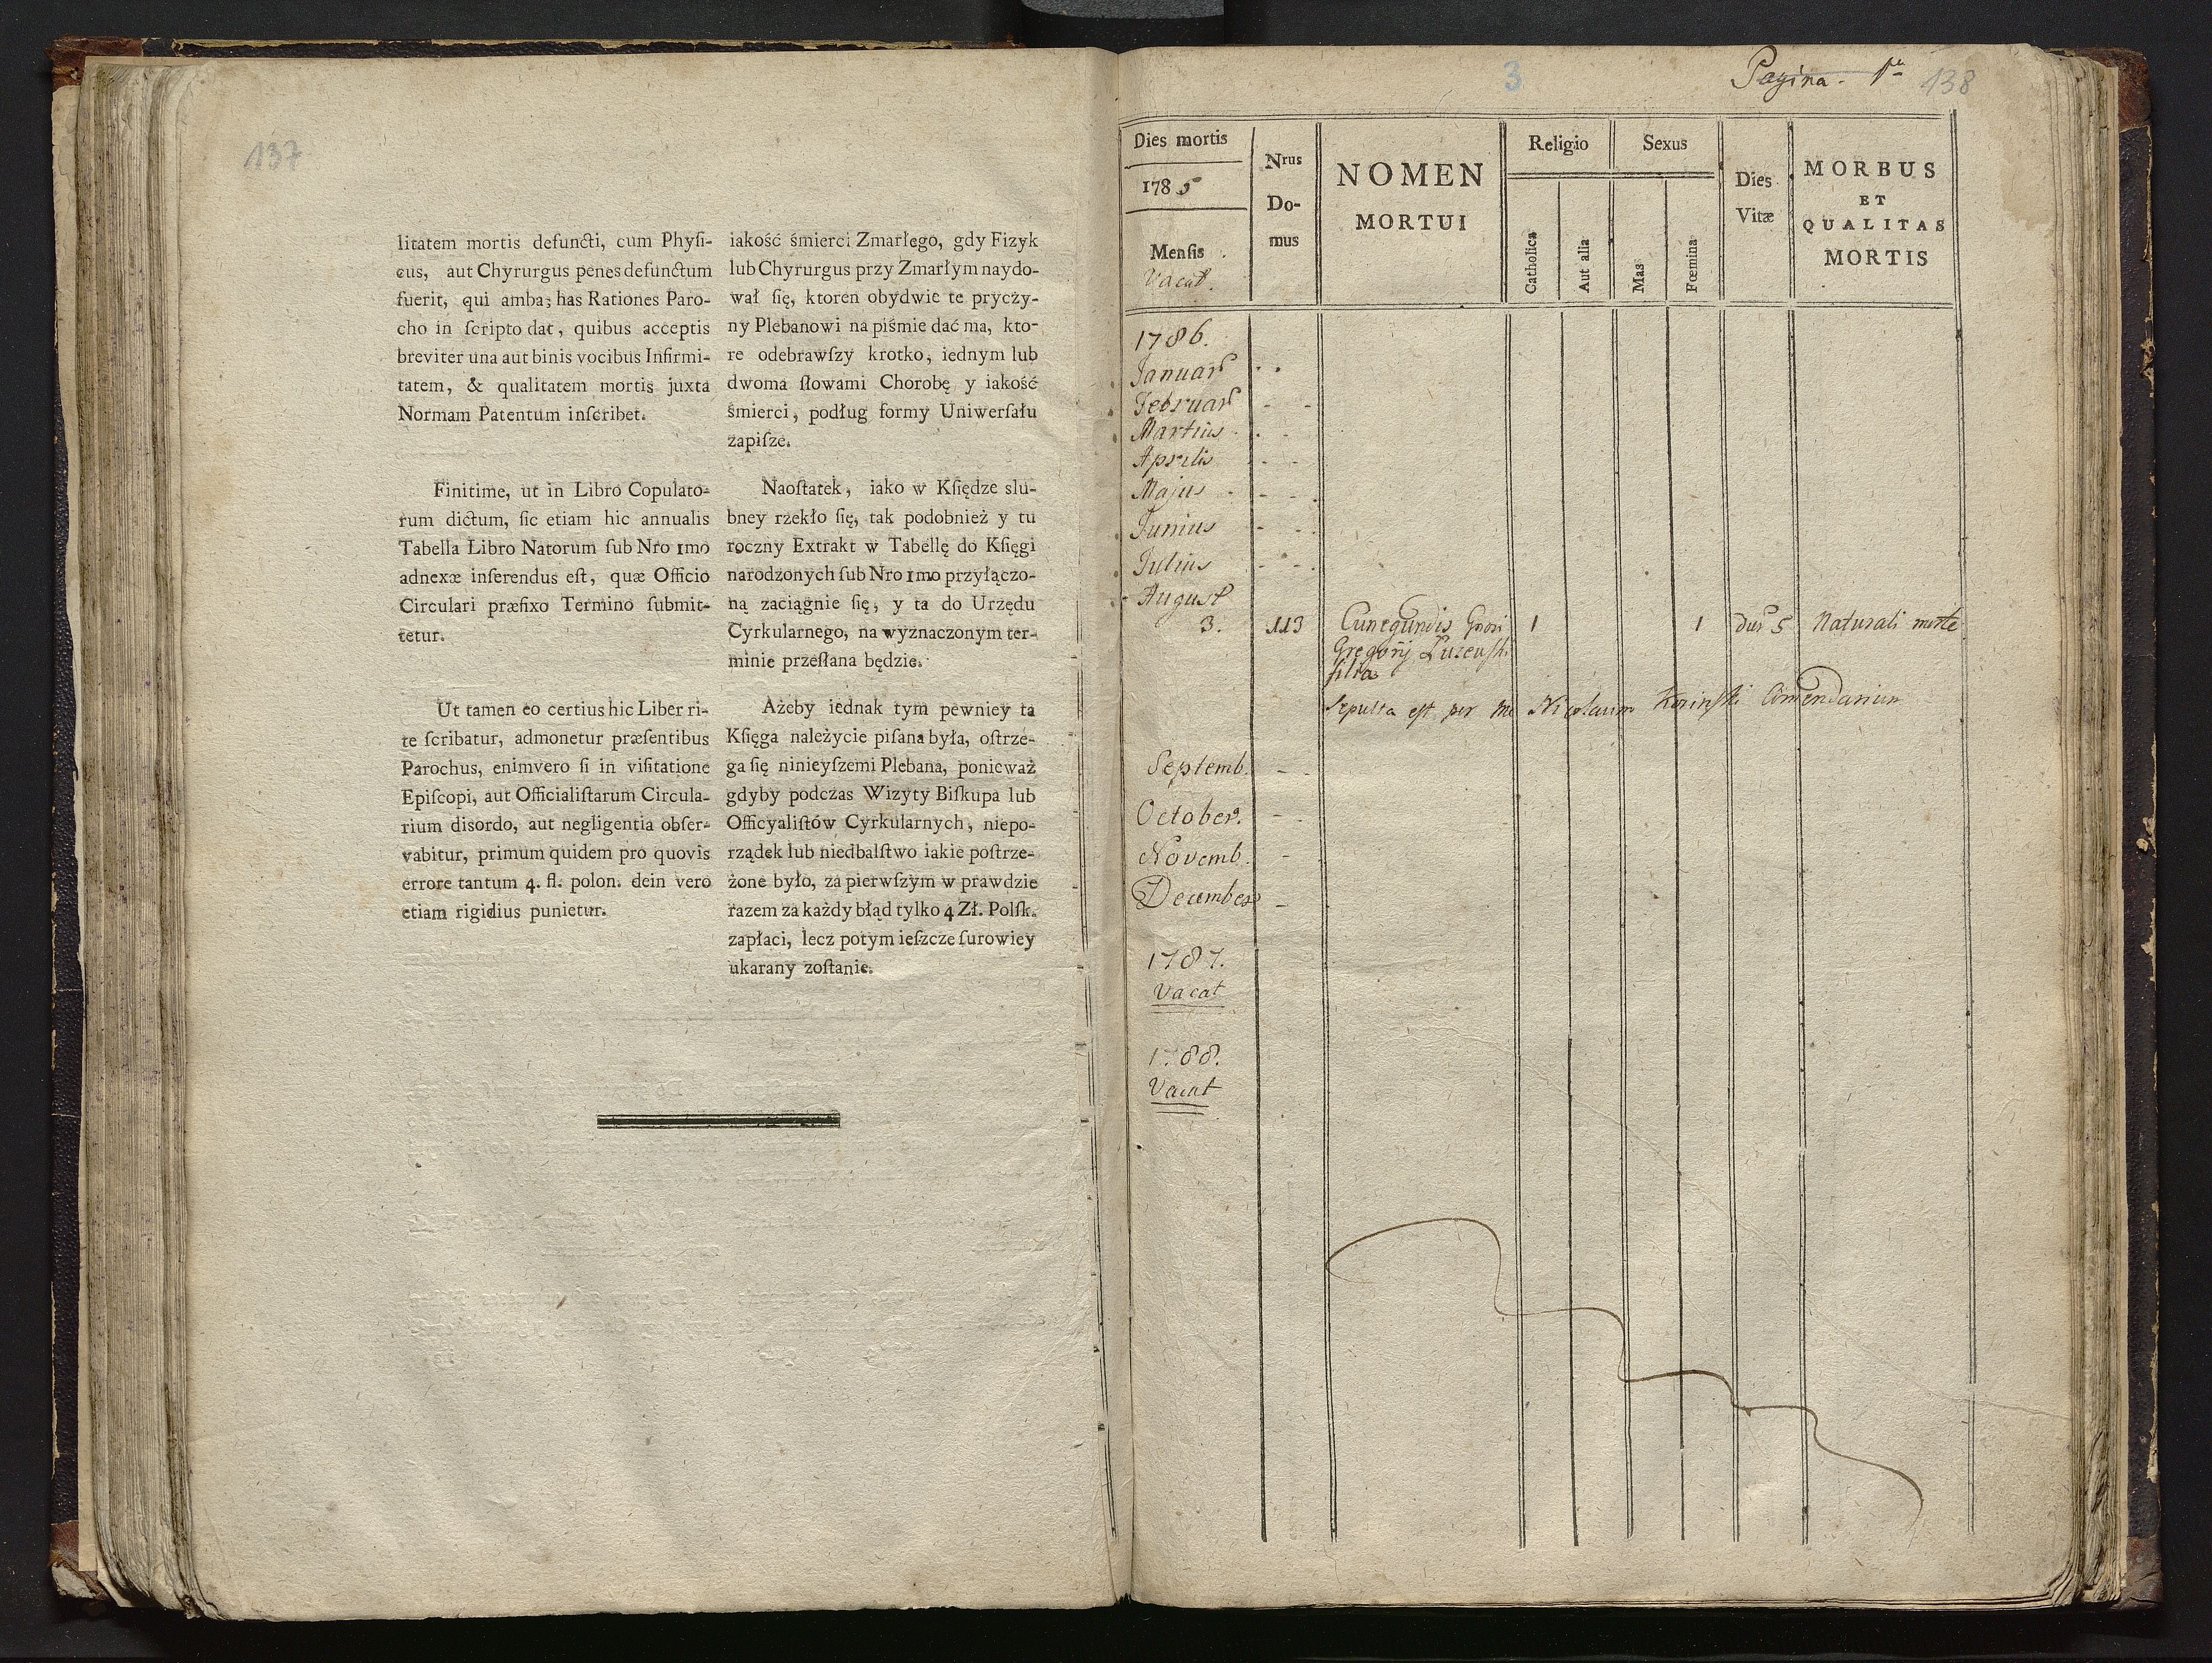 137
litatem mortis defuncti, cum Phyſi-
cus, aut Chyrurgus penes defunctum
fuerit, qui ambas has Rationes Paro-
cho in ſcripto dat, quibus acceptis
breviter una aut binis vocibus Infirmi-
tatem, & qualitatem mortis juxta
Normam Patentum inſcribet.
Finitime, ut in Libro Copulato-
rum dictum, ſic etiam hic annualis
Tabella Libro Natorum ſub Nro 1mo
adnexæ inſerendus eſt, quæ Officio
Circulari præfixo Termino ſubmit-
tetur.
Ut tamen eo certius hic Liber ri-
te ſcribatur, admonetur præſentibus
Parochus, enimvero ſi in viſitatione
Epiſcopi, aut Officialiſtarum Circula-
rium disordo, aut negligentia obſer-
vabitur, primum quidem pro quovis
errore tantum 4. fl. polon. dein vero
etiam rigidius punietur.
iakość śmierci Zmarłego, gdy Fizyk
lub Chyrurgus przy Zmarłym naydo-
wał ſię, ktoren obydwie te pryczy-
ny Plebanowi na piśmie dać ma, kto-
re odebrawſzy krotko, iednym lub
dwoma ſłowami Chorobę y iakość
śmierci, podług formy Uniwerſału
zapiſze.
Naoſtatek, iako w Kſiędze slu-
bney rzekło ſię, tak podobnież y tu
roczny Extrakt w Tabellę do Kſięgi
narodzonych ſub Nro 1mo przyłączo-
ną zaciągnie ſię, y ta do Urzędu
Cyrkularnego, na wyznaczonym ter-
minie przeſłana będzie.
Ażeby iednak tym pewniey ta
Kſięga należycie piſana była, oſtrze-
ga ſię ninieyſzemi Plebana, ponieważ
gdyby podczas Wizyty Biſkupa lub
Officyaliſtów Cyrkularnych, niepo-
rządek lub niedbalſtwo iakie poſtrze-
żone było, za pierwſzym w prawdzie
razem za każdy błąd tylko 4 Zł. Polſk.
zapłaci, lecz potym ieſzcze ſurowiey
ukarany zoſtanie.
3
Pagina. 1a
138
Dies mortis
1785
Menſis
Vacat.
Nrus
Do-
mus
NOMEN
MORTUI
Religio
Catholica
Aut alia
Sexus
Mas
Fœmina
Dies
Vitæ
MORBUS
ET
QUALITAS
MORTIS
1786.
Januar
Februar
Martius
Aprilis
Majus
Junius
Julius
August
3. 113 Cunegundis 1 1 5 Naturali morte
Gregorij
filia
Sepulta est per me Nicolaum
Septemb.
October.
Novemb.
December
1787.
Vacat
1788.
Vacat